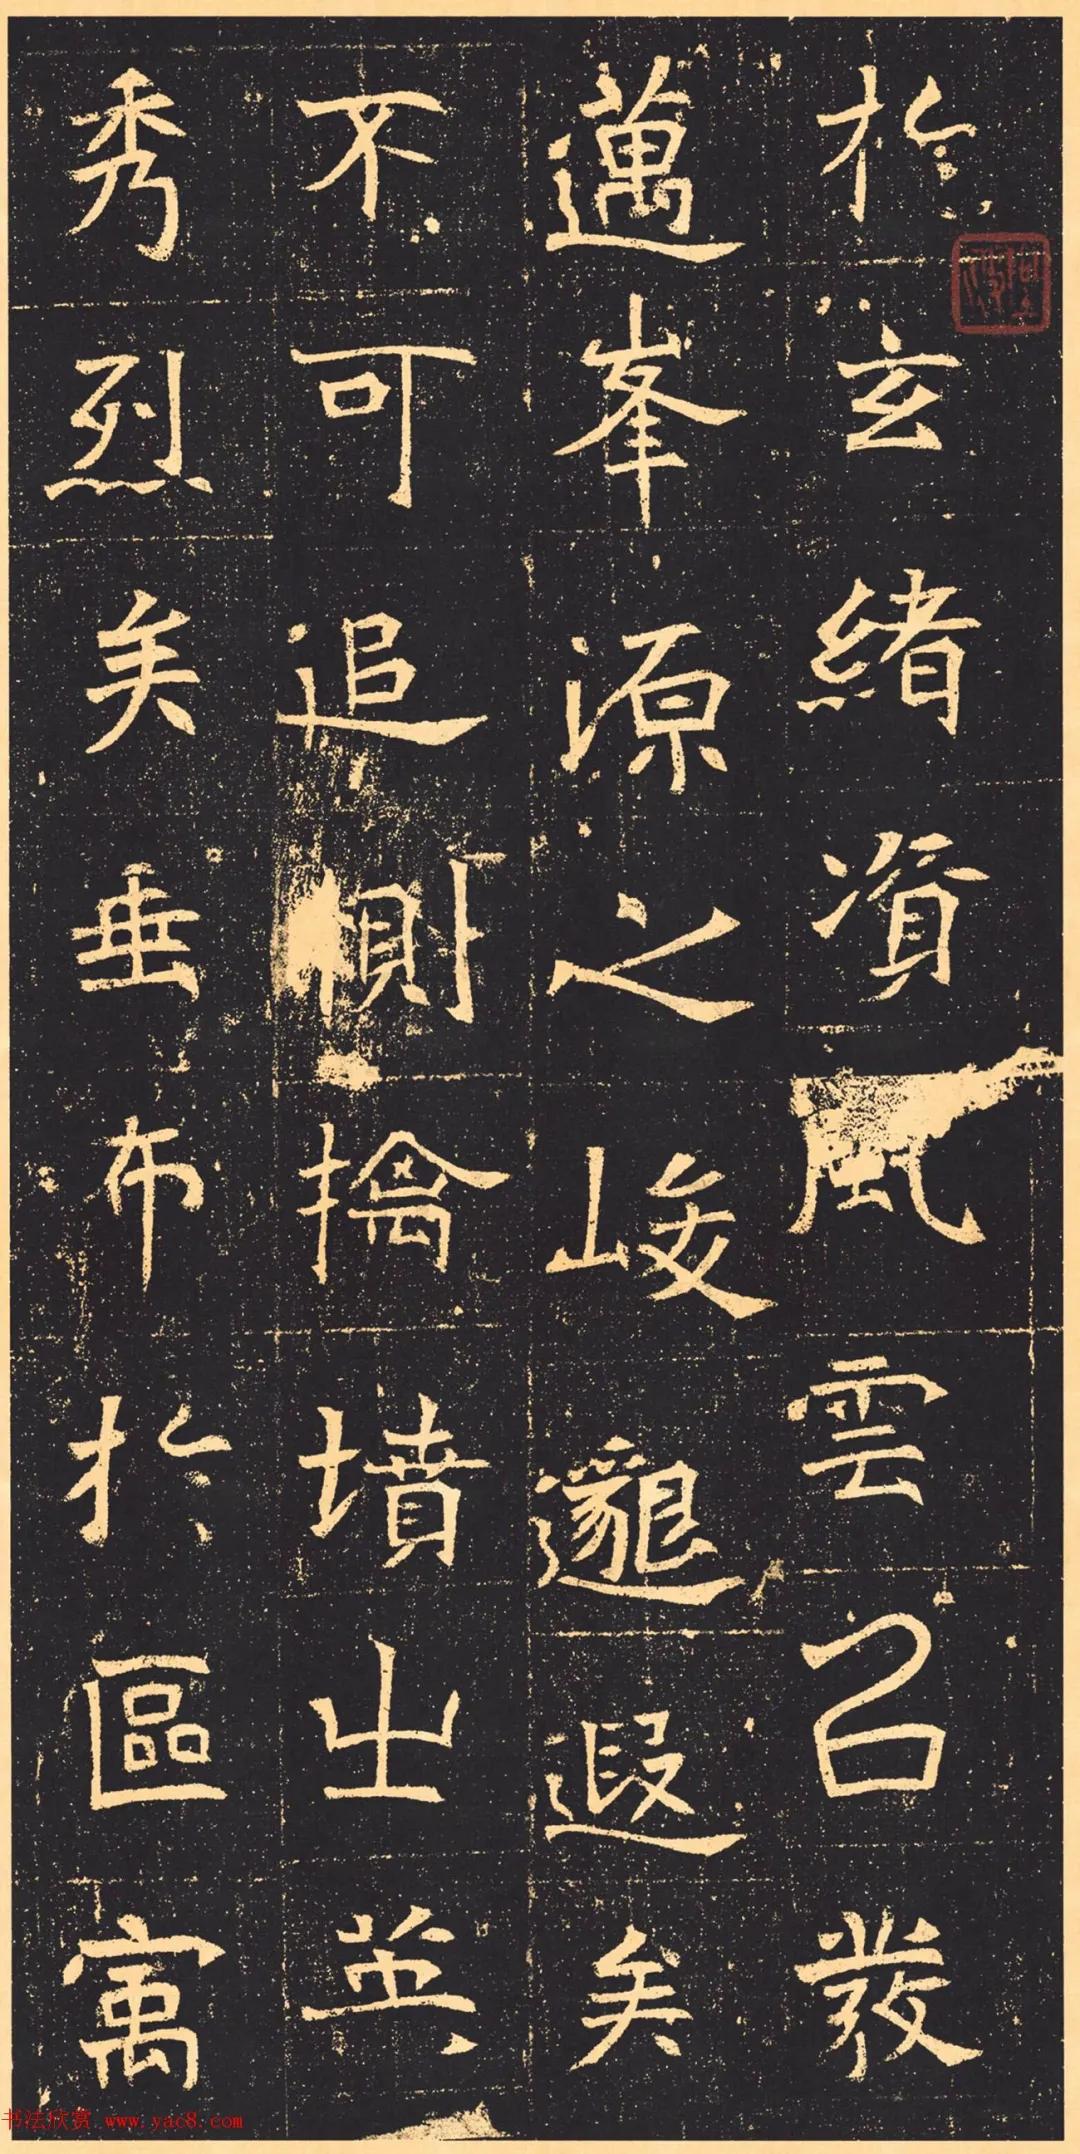 於玄緒資風雲以發
邁峯源之峻邈遐矣
不可追惻擒墳出英
秀烈矣垂布於區寓
书法欣赏 www.yac8.com